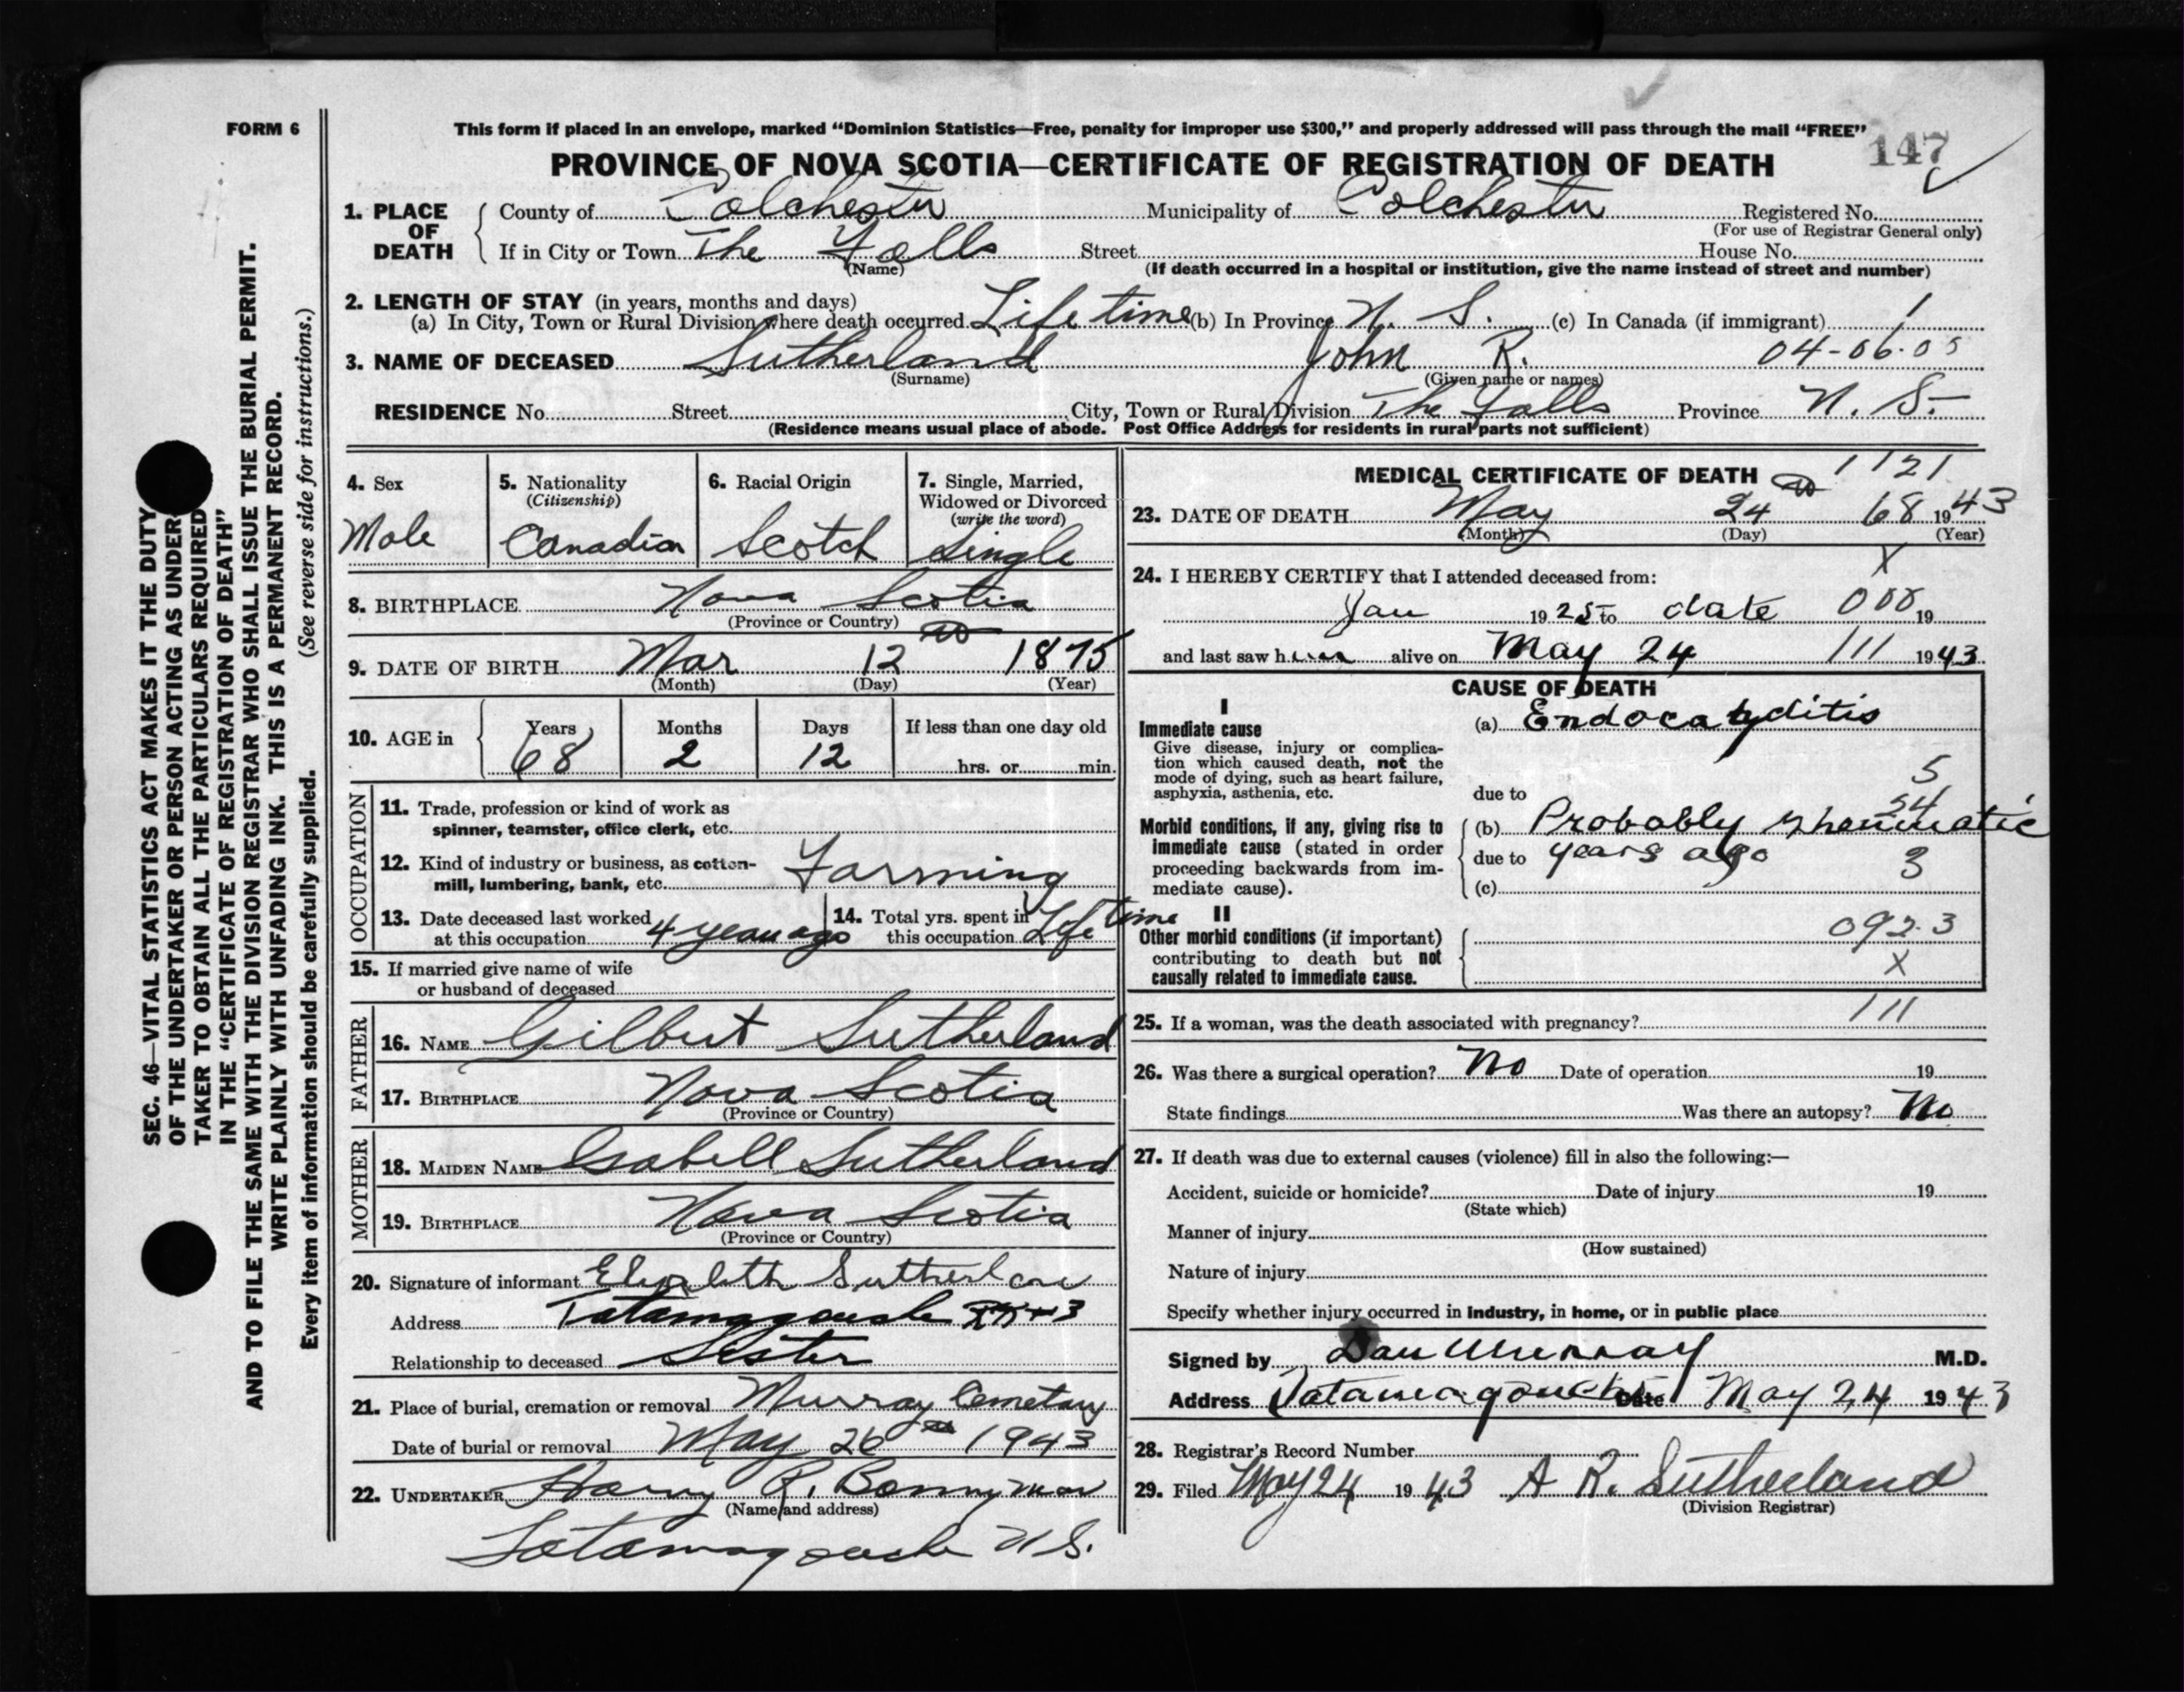 FORM 6
This form if placed in an envelope, marked “Dominion Statistics—Free, penalty for improper use $300,” and properly addressed will pass through the mail “FREE”
147
PROVINCE OF NOVA SCOTIA—CERTIFICATE OF REGISTRATION OF DEATH
1. PLACE OF DEATH County of Colchester Municipality of Colchester Registered No.
(For use of Registrar General only)
If in City or Town The Falls Street House No.
(Name) (If death occurred in a hospital or institution, give the name instead of street and number)
2. LENGTH OF STAY (in years, months and days)
(a) In City, Town or Rural Division where death occurred Life time (b) In Province N. S. (c) In Canada (if immigrant) 1
3. NAME OF DECEASED Sutherland John R. 04-06-05
(Surname) (Given name or names)
RESIDENCE No. Street City, Town or Rural Division The Falls Province N. S.
(Residence means usual place of abode. Post Office Address for residents in rural parts not sufficient)
4. Sex Male
5. Nationality (Citizenship) Canadian
6. Racial Origin Scotch
7. Single, Married, Widowed or Divorced (write the word) Single
8. BIRTHPLACE Nova Scotia
(Province or Country)
9. DATE OF BIRTH Mar 12 1875
(Month) (Day) (Year)
10. AGE in Years 68 Months 2 Days 12 If less than one day old
hrs. or min.
OCCUPATION
11. Trade, profession or kind of work as
spinner, teamster, office clerk, etc.
12. Kind of industry or business, as cotton-
mill, lumbering, bank, etc. Farming
13. Date deceased last worked
at this occupation 4 years ago
14. Total yrs. spent in
this occupation Life time
15. If married give name of wife
or husband of deceased
FATHER
16. NAME Gilbert Sutherland
17. BIRTHPLACE Nova Scotia
(Province or Country)
MOTHER
18. MAIDEN NAME Isabell Sutherland
19. BIRTHPLACE Nova Scotia
(Province or Country)
20. Signature of informant Elizabeth Sutherland
Address Tatamagouche
Relationship to deceased Sister
21. Place of burial, cremation or removal Murray Cemetary
Date of burial or removal May 26 1943
22. UNDERTAKER Harry R. Bonnyman
(Name and address)
Tatamagouche N S.
MEDICAL CERTIFICATE OF DEATH 1121
23. DATE OF DEATH May 24 68 1943
(Month) (Day) (Year)
X
24. I HEREBY CERTIFY that I attended deceased from:
Jan 1925 to date 000 19
and last saw him alive on May 24 111 1943
CAUSE OF DEATH
I
Immediate cause
Give disease, injury or complica-
tion which caused death, not the
mode of dying, such as heart failure,
asphyxia, asthenia, etc.
(a) Endocarditis
5
due to
54
Morbid conditions, if any, giving rise to
immediate cause (stated in order
proceeding backwards from im-
mediate cause).
(b) Probably rheumatic
due to years ago 3
(c)
II
Other morbid conditions (if important)
contributing to death but not
causally related to immediate cause.
092.3
X
111
25. If a woman, was the death associated with pregnancy?
26. Was there a surgical operation? No Date of operation 19
State findings Was there an autopsy? No
27. If death was due to external causes (violence) fill in also the following:—
Accident, suicide or homicide? Date of injury 19
(State which)
Manner of injury
(How sustained)
Nature of injury
Specify whether injury occurred in industry, in home, or in public place
Signed by Dan Murray M.D.
Address Tatamagouche Date May 24 1943
28. Registrar's Record Number
29. Filed May 24 1943 A R. Sutherland
(Division Registrar)
SEC. 46—VITAL STATISTICS ACT MAKES IT THE DUTY
OF THE UNDERTAKER OR PERSON ACTING AS UNDER-
TAKER TO OBTAIN ALL THE PARTICULARS REQUIRED
IN THE “CERTIFICATE OF REGISTRATION OF DEATH”
AND TO FILE THE SAME WITH THE DIVISION REGISTRAR WHO SHALL ISSUE THE BURIAL PERMIT.
WRITE PLAINLY WITH UNFADING INK. THIS IS A PERMANENT RECORD.
Every item of information should be carefully supplied. (See reverse side for instructions.)